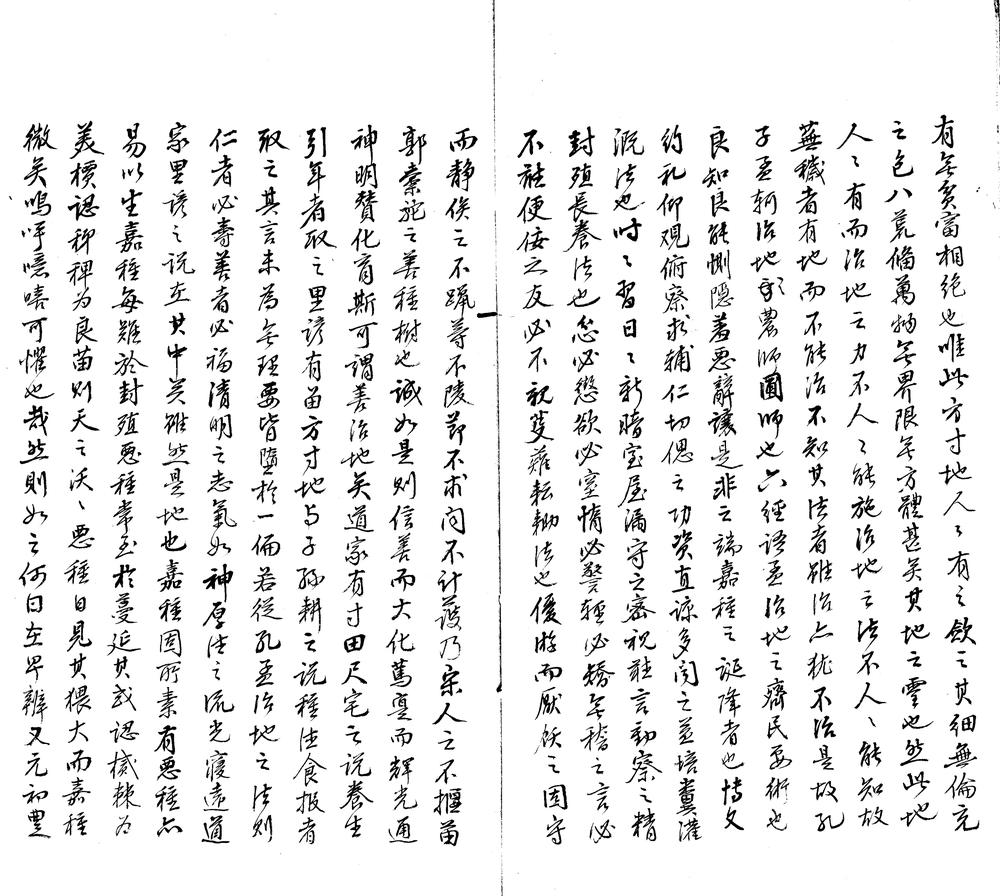 有無貧富相絶也唯此方寸地人々有之斂之其細無倫充
之包八荒備萬物無界限無方體甚矣其地之靈也然此地
人々有而治地之力不人々能施治地之法不人々能知故
蕪穢者有地而不能治不知其法者雖治亦猶不治是故孔
子孟軻治地之農師圃師也六經語孟治地之齊民要術也
良知良能惻隱羞惡辭讓是非之端嘉種之誕降者也博文
約礼仰観俯察求輔仁切偲之功資直諒多聞之益培糞灌
漑法也時々習日々新暗室屋漏守之密視聽言動察之精
封殖長養法也忿必懲欲必窒惰必警輕必矯無稽之言必
不聽便佞之友必不親芟薙耘耡法也優游而厭飫之固守
而静俟之不躐等不陵節不求問不計獲乃宋人之不揠苗
郭橐駝之善種樹也誠如是則信善而大化篤實而輝光通
神明賛化育斯可謂善治地矣道家有寸田尺宅之説養生
引年者取之里諺有留方寸地与子孫耕之説種徳食报者
取之其言未為無理要皆墮於一偏若從孔孟治地之法則
仁者必壽善者必福清明之志氣如神厚徳之流光寢遠道
家里諺之説在其中矣雖然是地也嘉種固所素有惡種亦
易以生嘉種每難於封殖惡種常至於蔓延其或認樲棘為
美檟認稊稗為良苗則天之沃々惡種日見其猥大而嘉種
微矣嗚呼噫嘻可懼也哉然則如之何曰在早辨又元初豊